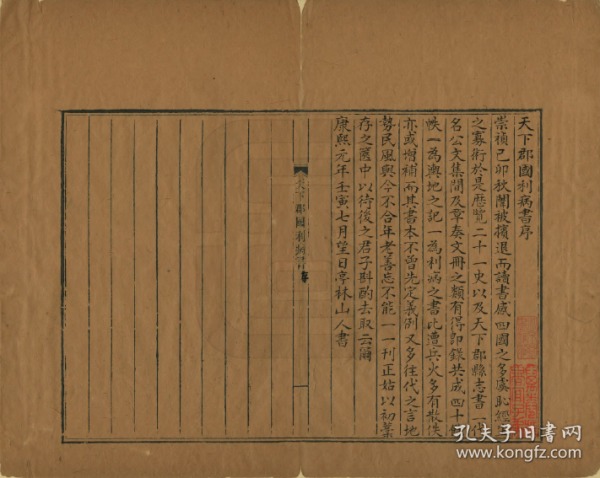 天下郡國利病書序
崇禎己卯秋闈被擯退而讀書感四國之多虞恥經
之寡術於是歷覽二十一史以及天下郡縣志書一
名公文集間及章奏文冊之類有得即錄共成四十
帙一為輿地之記一為利病之書比遭兵火多有散佚
亦或增補而其書本不曾先定義例又多往代之言地
勢民風與今不合年老善忘不能一一刊正姑以初藁
存之篋中以待後之君子斟酌去取云爾
康熙元年壬寅七月望日亭林山人書
天下郡國利病書 序
孔夫子旧书网
www.kongfz.com